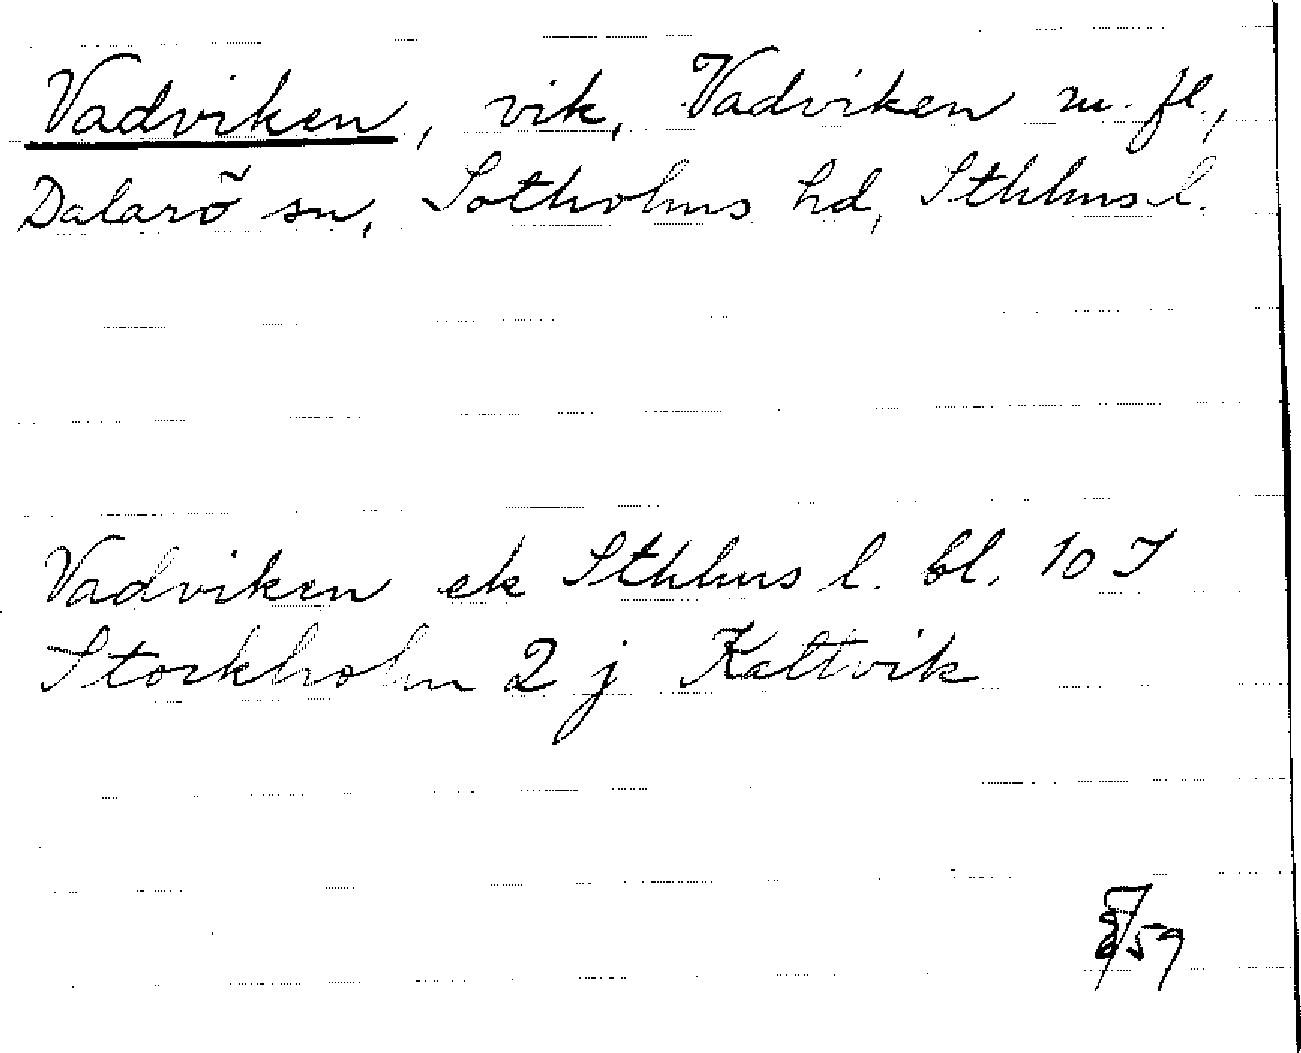 Vadviken, vik, Vadviken m. fl.,
Dalarö sn, Sotholms hd, Sthlms l.
Vadviken ek Sthlms l. bl. 10 I
Stockholm 2 j Kaltvik